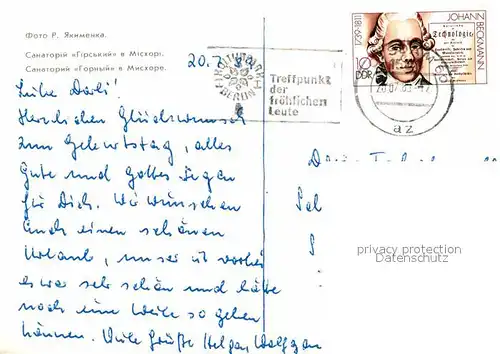 Фото Р. Якименка.
Санаторій «Гірський» в Місхорі.
Санаторий «Горный» в Мисхоре.
20.7.
Liebe Dorli!
Herzlichen Glückwunsch
zum Geburtstag, alles
Gute und Gottes Segen
für Dich. Wir wünschen
Euch einen schönen
Urlaub, unser ist vorbei
es war sehr schön und hätte
noch eine Weile so gehen
können. Viele Grüße Helga, Wolfgang
KULTURPARK
BERLIN
Treffpunkt
der
fröhlichen
Leute
JOHANN
BECKMANN
1739-1811
Technologie
10
DDR
az
privacy protection
Datenschutz